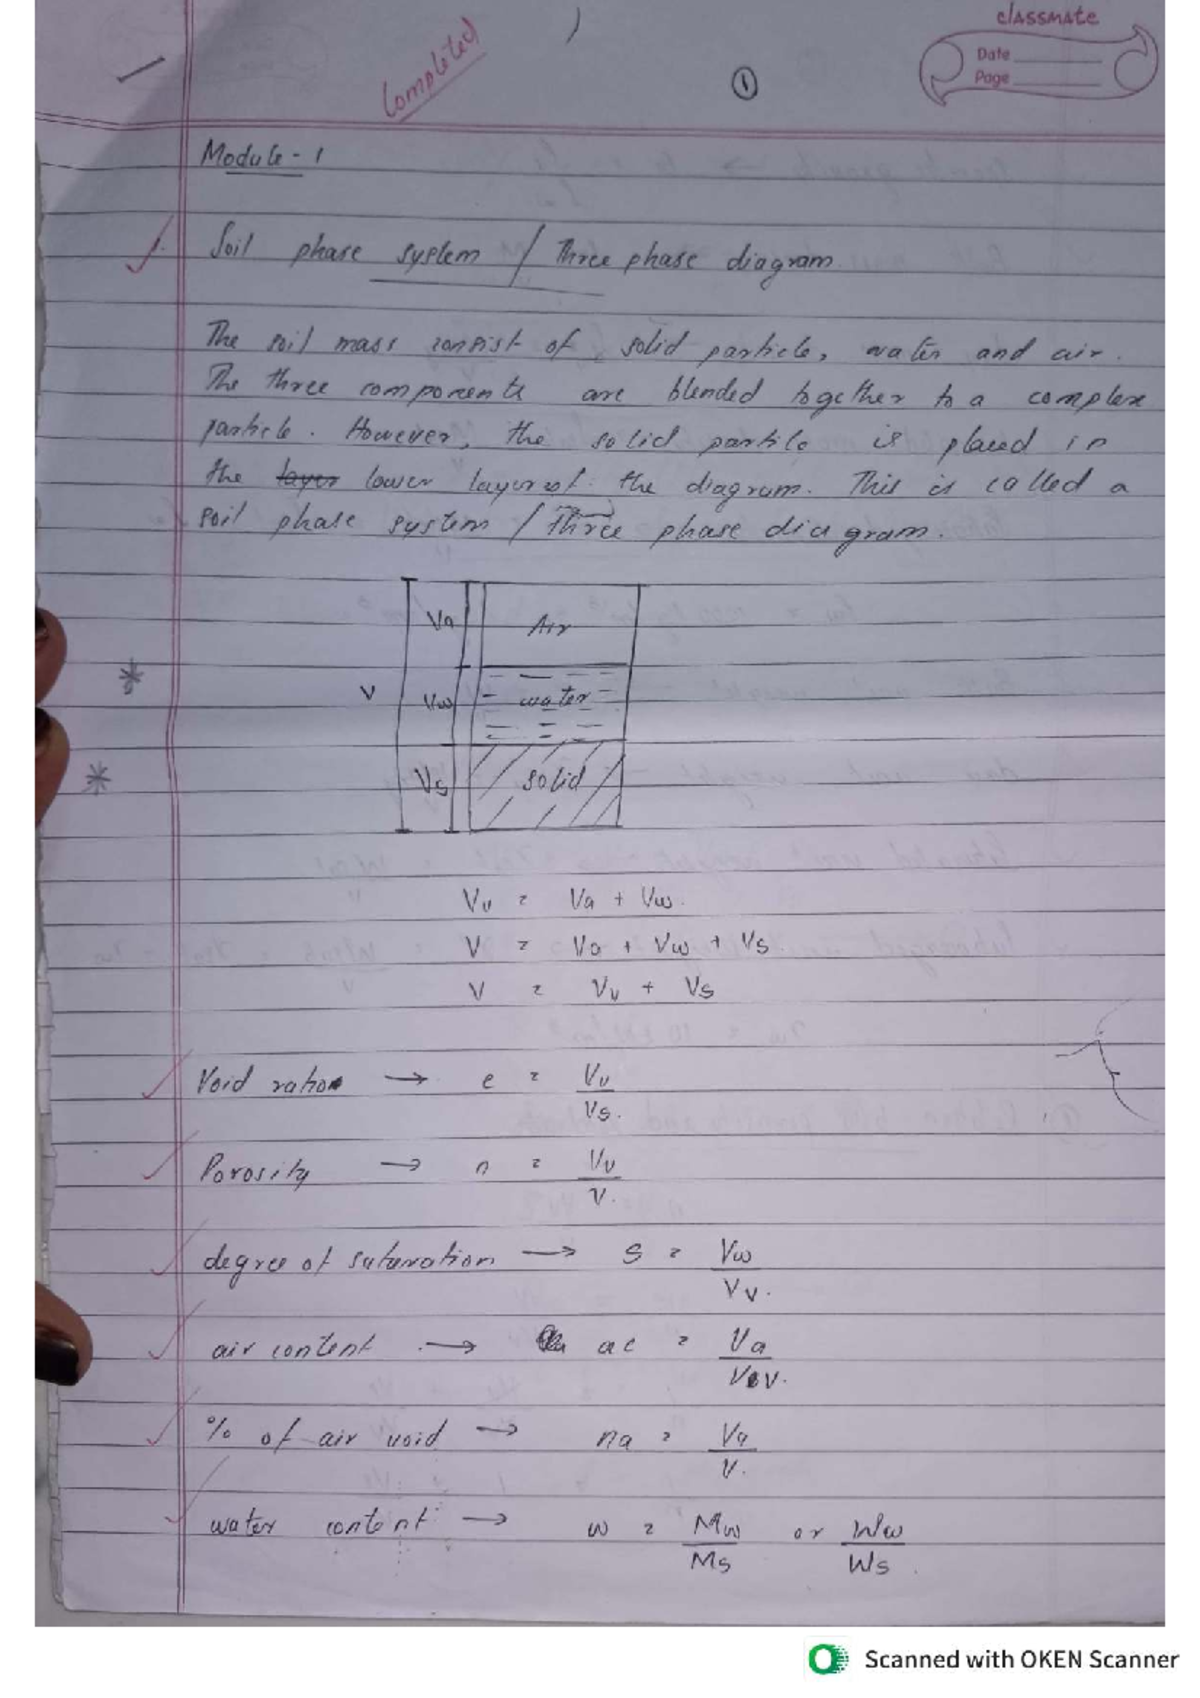 classmate
Date
Page
Completed
1
Module - 1
1. Soil phase system / Three phase diagram.
The soil mass consist of solid particle, water and air.
The three components are blended together to a complex
particle. However, the solid partile is placed in
the layer lower layer of the diagram. This is called a
soil phase system / Three phase diagram.
Va Air
V Vw water
Vs Solid
Vv = Va + Vw.
V = Va + Vw + Vs
V = Vv + Vs
Void ratio → e = Vv/Vs.
Porosity → n = Vv/V.
degree of saturation → S = Vw/Vv.
air content → ac = Va/Vv.
% of air void → na = Va/V.
water content → w = Mw/Ms or Ww/Ws.
Scanned with OKEN Scanner